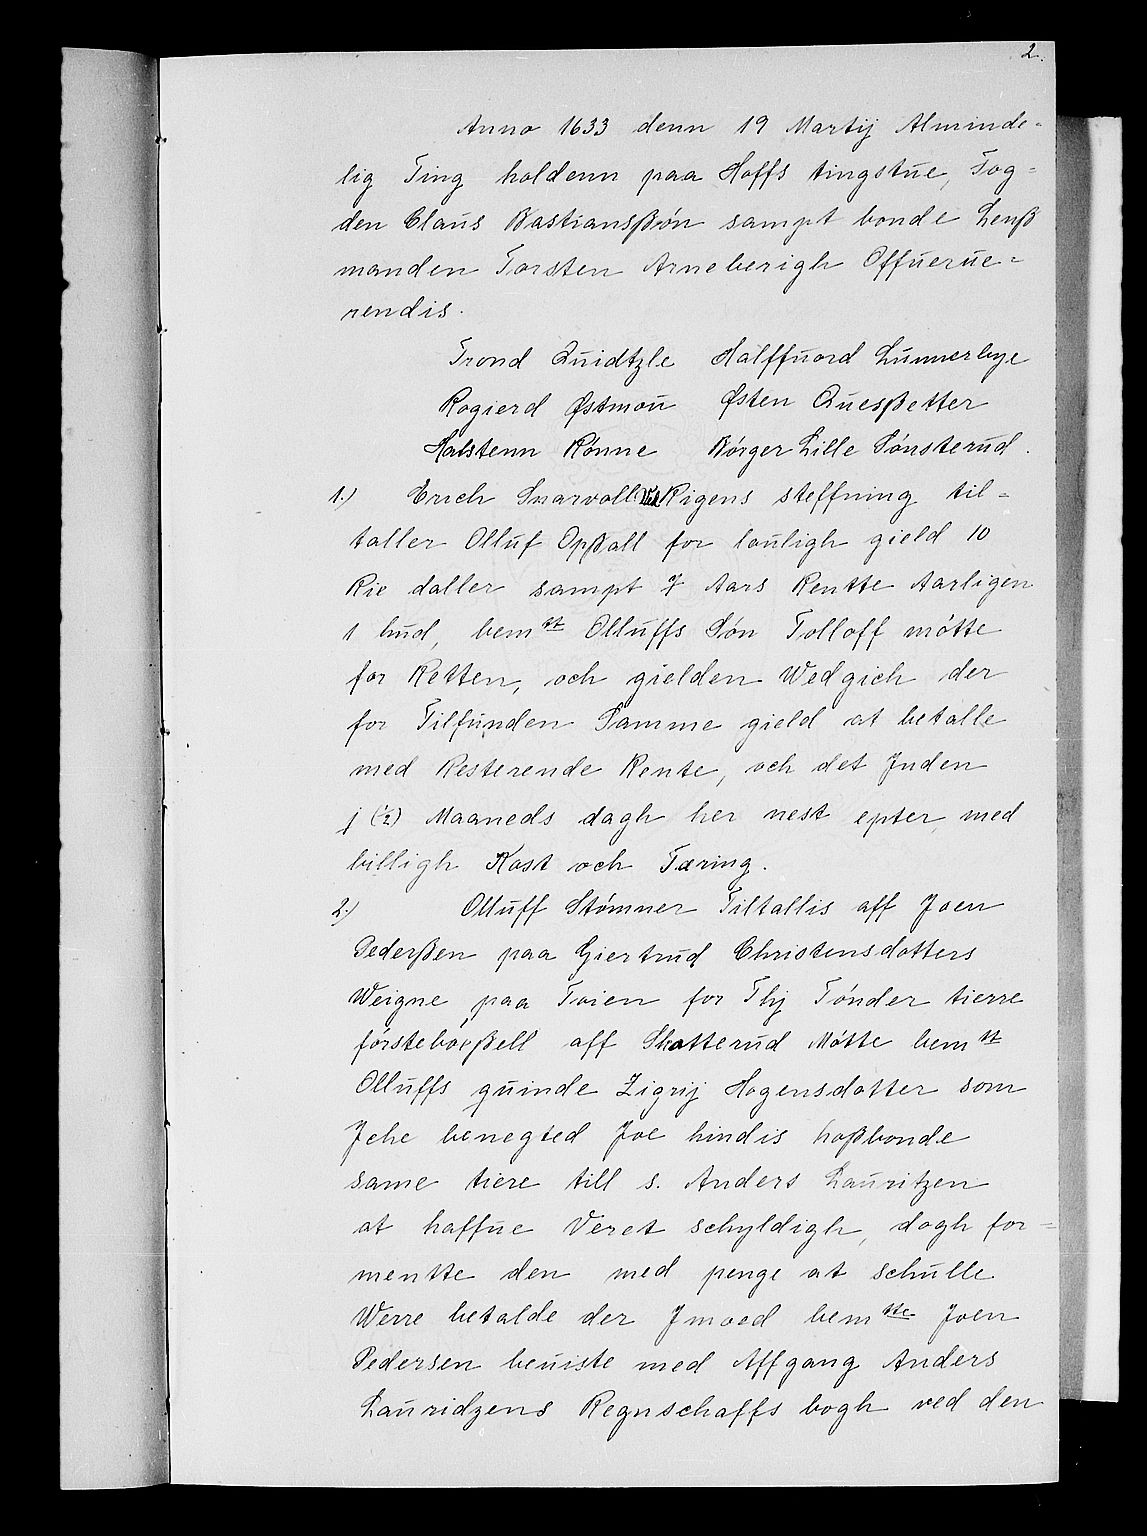 2.
Anno 1633 denn 19 Martij Alminde-
lig Ting holdenn paa Hoffs tingstue, Fog-
den Claus Bastiansßøn sampt bonde Lenß
manden Torsten Arneberigh Offuerue-
rendis.
Trond Quidtzle Halffuord Lunnerbye
Rogierd Østmou Østen Quesßetter
Halstenn Rønne Børger Lille Sønsterud.
1.) Erich Snarvoll Ved Rigens steffning til-
taller Olluf Opßall for louligh gield 10
Rix daller sampt 7 Aars Rentte Aarligen
1 hud, bem tt Olluffs Søn Tolloff møtte
for Retten, och gielden Wedgich der
for Tilfunden Samme gield at betalle
med Resterende Rente, och det Inden
j (½) Maaneds dagh her nest epter, med
billigh Kost och Tæring.
2.) Olluff Stømner Tiltallis aff Joen
Pederßen paa Giertrud Christensdatters
Weigne paa Toien for Thj Tønder tierre
førsteboeßell aff Skatterud Møtte bem tt
Olluffs quinde Zigrij Hogensdatter som
Iche benegted Joe hindis hoßbonde
same tiere till s. Anders Lauritzen
at haffue Veret schyldigh, dogh for-
mentte den med penge at schulle
Werre betalde der Imoed bem tte Joen
Pedersen beuiste med Affgang Anders
Lauridzens Regnschaffs bogh ved den